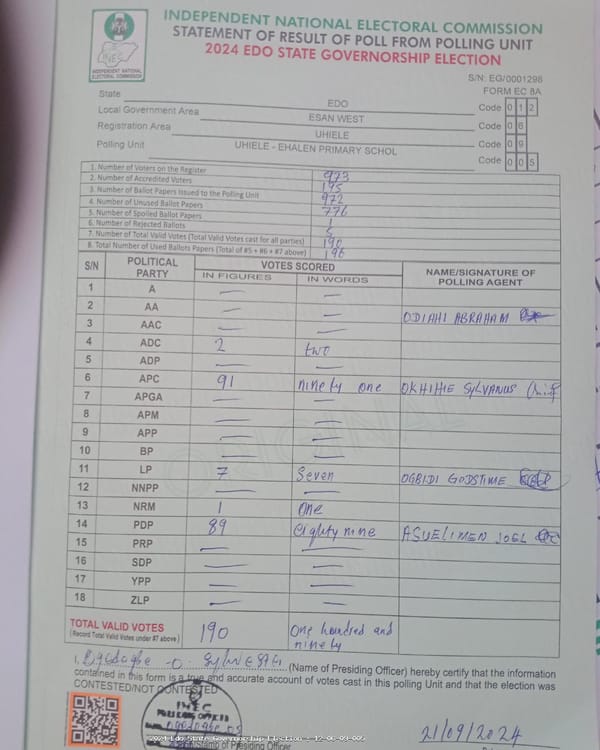 INDEPENDENT NATIONAL ELECTORAL COMMISSION
STATEMENT OF RESULT OF POLL FROM POLLING UNIT
2024 EDO STATE GOVERNORSHIP ELECTION
INEC
INDEPENDENT NATIONAL
ELECTORAL COMMISSION
S/N: EG/0001298
FORM EC 8A
State EDO Code 0 1 2
Local Government Area ESAN WEST Code 0 6
Registration Area UHIELE Code 0 9
Polling Unit UHIELE - EHALEN PRIMARY SCHOL Code 0 0 5
1. Number of Voters on the Register 973
2. Number of Accredited Voters 195
3. Number of Ballot Papers Issued to the Polling Unit 972
4. Number of Unused Ballot Papers 776
5. Number of Spoiled Ballot Papers 1
6. Number of Rejected Ballots 5
7. Number of Total Valid Votes (Total Valid Votes cast for all parties) 190
8. Total Number of Used Ballots Papers (Total of #5 + #6 + #7 above) 196
S/N POLITICAL PARTY VOTES SCORED NAME/SIGNATURE OF POLLING AGENT
IN FIGURES IN WORDS
1 A — —
2 AA — — ODIAHI ABRAHAM
3 AAC — —
4 ADC 2 two
5 ADP — —
6 APC 91 ninety one OKHIHIE SYLVANUS
7 APGA — —
8 APM — —
9 APP — —
10 BP — —
11 LP 7 Seven OGBIDI GODSTIME
12 NNPP — —
13 NRM 1 One
14 PDP 89 eighty nine ASUELIMEN JOEL
15 PRP — —
16 SDP — —
17 YPP — —
18 ZLP — —
ORIGINAL
TOTAL VALID VOTES 190 One hundred and ninety
(Record Total Valid Votes under #7 above)
1. (Name of Presiding Officer) hereby certify that the information
contained in this form is a true and accurate account of votes cast in this polling Unit and that the election was
CONTESTED/NOT CONTESTED
INEC
21/09/2024
of Presiding Officer